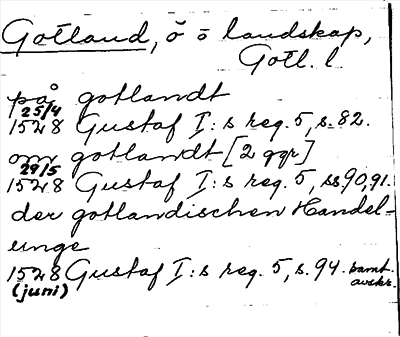 Gotland, ö o landskap,
Gotl. l.
på gotlandt
25/4
1528 Gustaf I:s reg. 5, s. 82.
om gotlandt [2 ggr]
29/5
1528 Gustaf I:s reg. 5, ss. 90, 91.
der gotlandischen Handel-
unge
1528 Gustaf I:s reg. 5, s. 94. samt.
(juni) avskr.